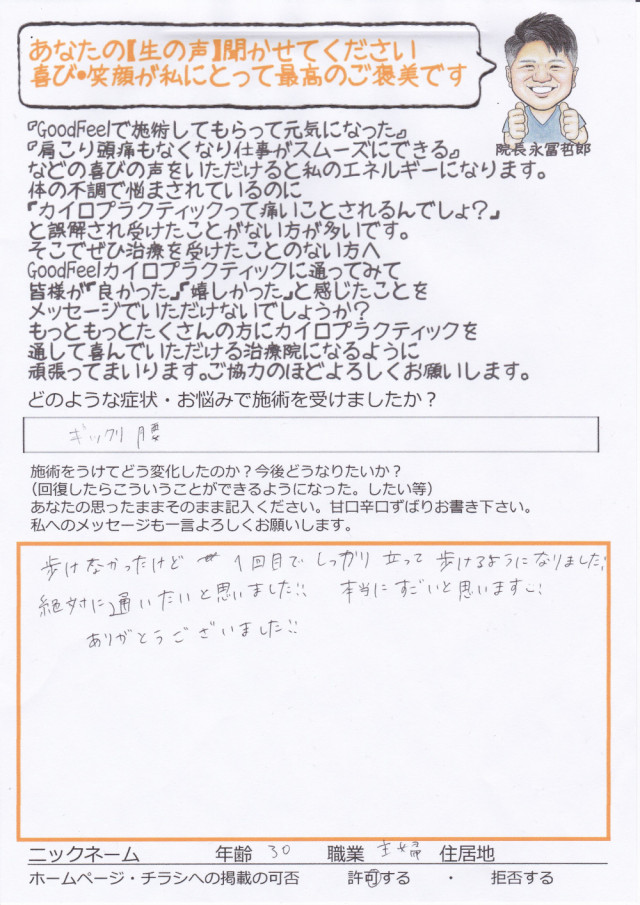 あなたの【生の声】聞かせてください
喜び•笑顔が私にとって最高のご褒美です
『GoodFeelで施術してもらって元気になった』
『肩こり頭痛もなくなり仕事がスムーズにできる』
院長 永冨哲郎
などの喜びの声をいただけると私のエネルギーになります。
体の不調で悩まされているのに
『カイロプラクティックって痛いことされるんでしょ?』
と誤解され受けたことがない方が多いです。
そこでぜひ治療を受けたことのない方へ
GoodFeelカイロプラクティックに通ってみて
皆様が『良かった』『嬉しかった』と感じたことを
メッセージでいただけないでしょうか?
もっともっとたくさんの方にカイロプラクティックを
通して喜んでいただける治療院になるように
頑張ってまいります。ご協力のほどよろしくお願いします。
どのような症状・お悩みで施術を受けましたか?
ギックリ腰
施術をうけてどう変化したのか?今後どうなりたいか?
(回復したらこういうことができるようになった。したい等)
あなたの思ったままそのまま記入ください。甘口辛口ずばりお書き下さい。
私へのメッセージも一言よろしくお願いします。
歩けなかったけど 1回目で しっかり 立って 歩けるようになりました!!
絶対に通いたいと思いました!! 本当にすごいと思います
ありがとうございました!!
ニックネーム 年齢 30 職業 主婦 住居地
ホームページ・チラシへの掲載の可否 許可する ・ 拒否する